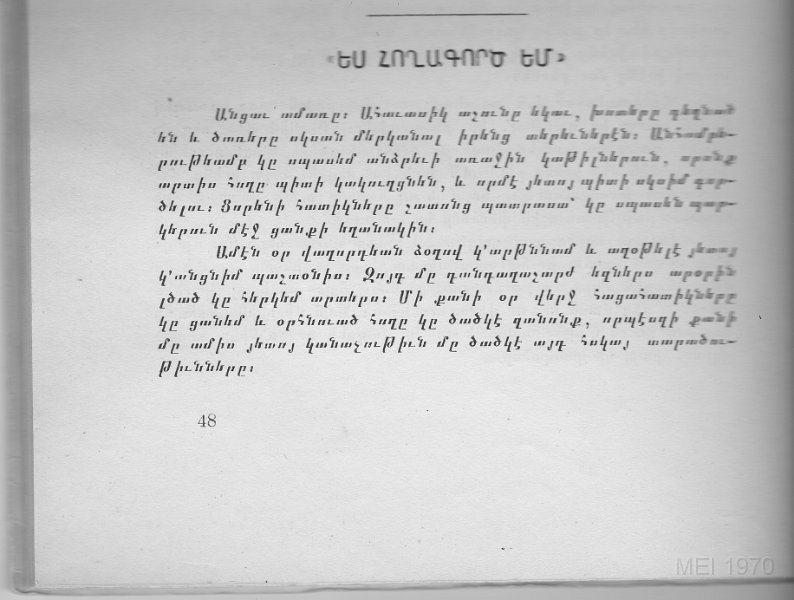 «ԵՍ ՀՈՂԱԳՈՐԾ ԵՄ»
Անցաւ ամառը։ Ահաւասիկ աշունը եկաւ, խոտերը դեղնած
են և ծառերը սկսան մերկանալ իրենց տերեւներէն։ Անհամբե-
րութեամբ կը սպասեմ անձրեւի առաջին կաթիլներուն, որոնք
արտիս հողը պիտի կակուղցնեն, և որմէ յետոյ պիտի սկսիմ գոր-
ծելու։ Ցորենի հատիկները շատոնց պատրաստ՝ կը սպասեն պար-
կերուն մէջ ցանքի եղանակին։
Ամէն օր վաղորդեան ձօղով կ'արթննամ և աղօթելէ յետոյ
կ'անցնիմ պաշտօնիս։ Զոյգ մը դանդաղաշարժ եզներս արօրին
լծած կը հերկեմ արտերս։ Մի քանի օր վերջ հացահատիկները
կը ցանեմ և օրհնուած հողը կը ծածկէ զանոնք, որպէսզի քանի
մը ամիս յետոյ կանաչութիւն մը ծածկէ այդ հսկայ տարածու-
թիւնները։
48
MEI 1970